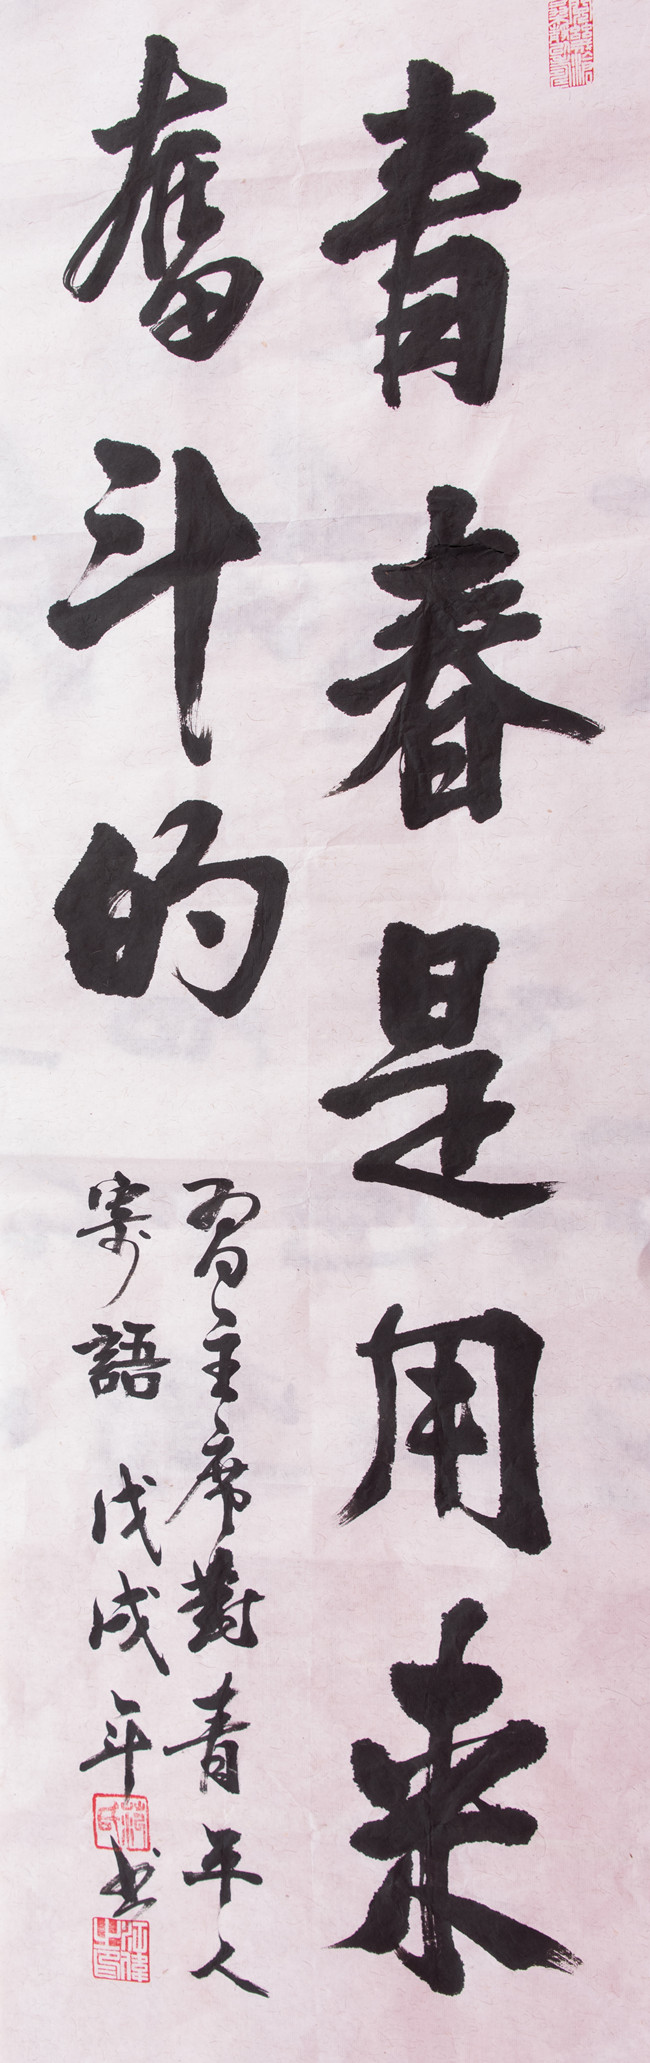 青春是用来
奮斗的
習主席對青年人
寄語 戊戌年书